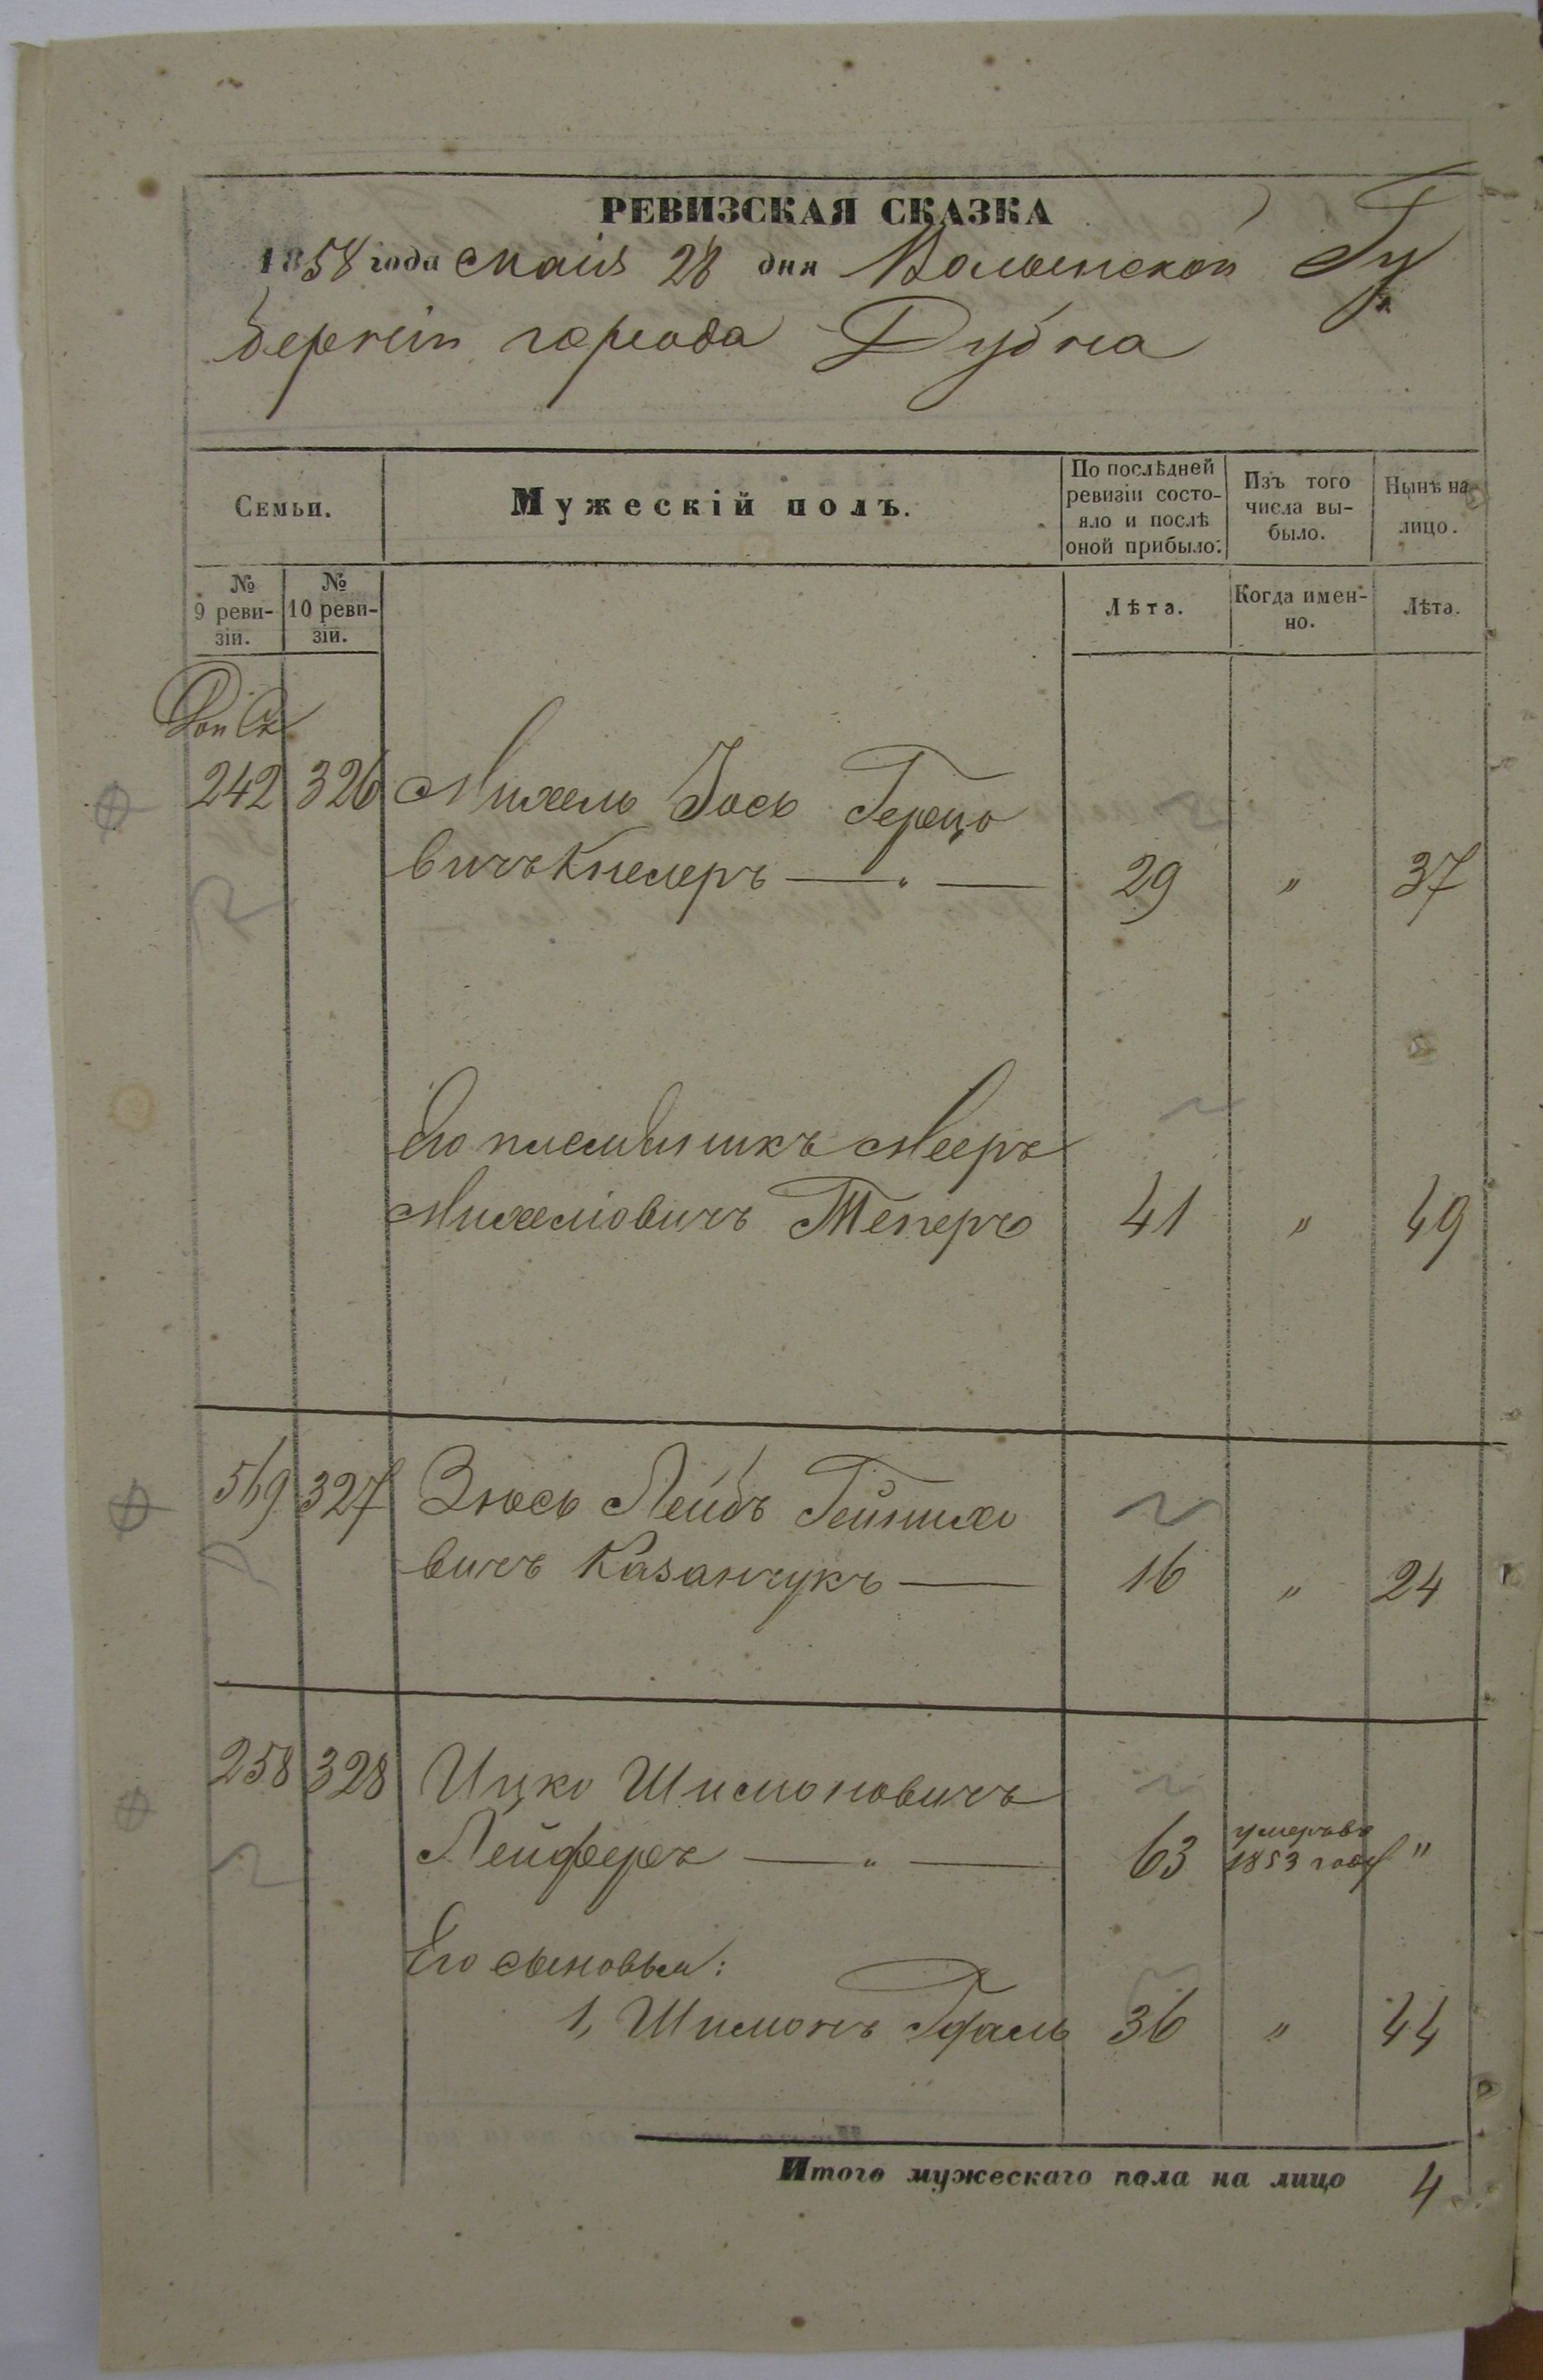 РЕВИЗСКАЯ СКАЗКА
1858 года Маія 28 дня Волынской Гу
берніи города Дубна
Семьи.
Мужескій полъ.
По послѣдней
ревизіи состо-
яло и послѣ
оной прибыло:
Изъ того
числа вы-
было.
Нынѣ на
лицо.
№
9 реви-
зіи.
№
10 реви-
зіи.
Лѣта.
Когда имен-
но.
Лѣта.
242 326 Михель Іось Герцо
вичъ — " — 29 " 37
Его племянникъ Мееръ
Михелiовичъ Теперъ 41 " 49
569 327 Зюсь Лейбъ Гейнихо
вичъ Казанчукъ — 16 " 24
258 328 Ицко Шимоновичъ
Лейферъ — " — 63 умеръ въ 1853 году "
Его сыновья:
1, Шимонъ Гдаль 36 " 44
Итого мужескаго пола на лицо 4